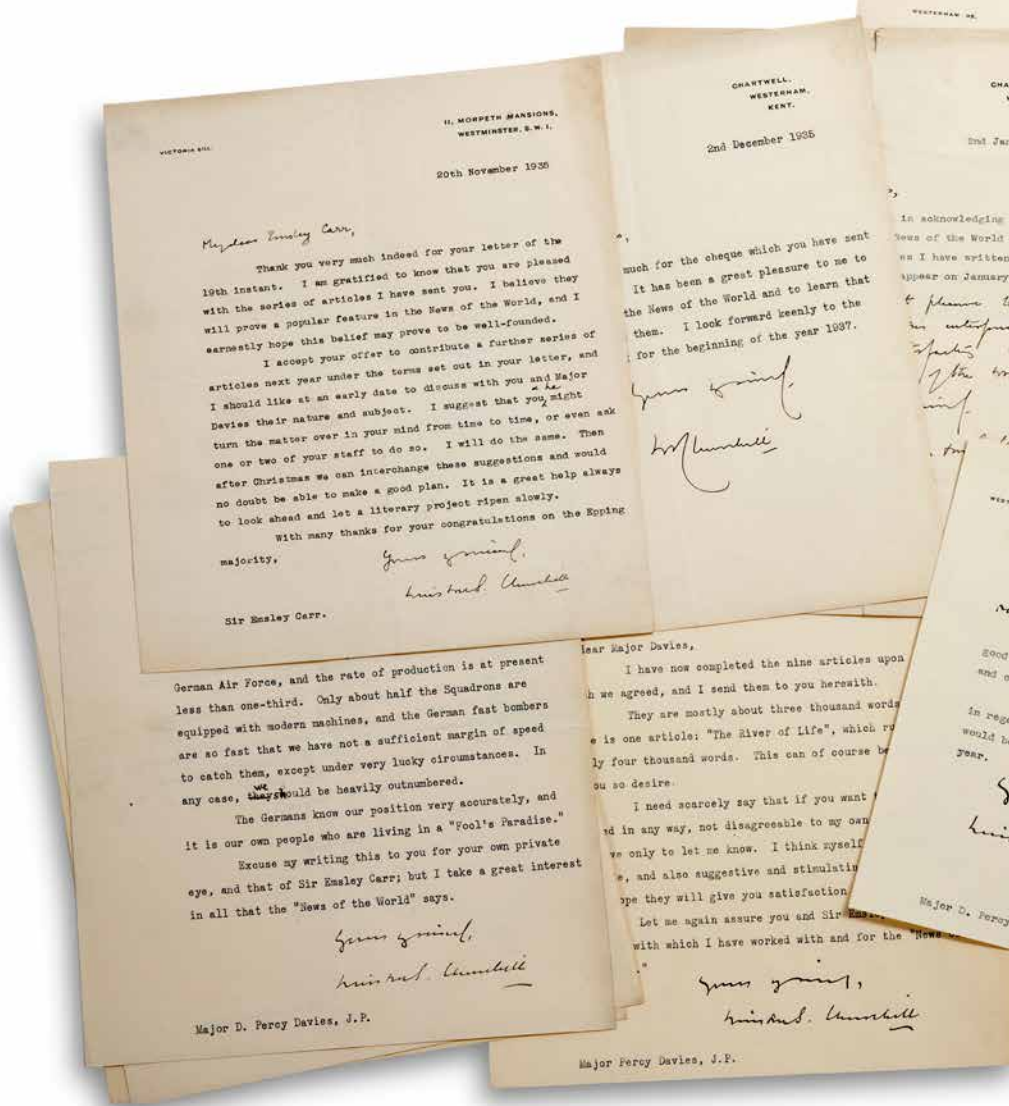 WESTERHAM 93.
VICTORIA
11, MORPETH MANSIONS,
WESTMINSTER, S.W.1.
20th November 1935
My dear Emsley Carr,
Thank you very much indeed for your letter of the
19th instant. I am gratified to know that you are pleased
with the series of articles I have sent you. I believe they
will prove a popular feature in the News of the World, and I
earnestly hope this belief may prove to be well-founded.
I accept your offer to contribute a further series of
articles next year under the terms set out in your letter, and
I should like at an early date to discuss with you and Major
Davies their nature and subject. I suggest that you & he might
turn the matter over in your mind from time to time, or even ask
one or two of your staff to do so. I will do the same. Then
after Christmas we can interchange these suggestions and would
no doubt be able to make a good plan. It is a great help always
to look ahead and let a literary project ripen slowly.
With many thanks for your congratulations on the Epping
majority,
Yours sincerely,
Winston S. Churchill
Sir Emsley Carr.
CHARTWELL,
WESTERHAM,
KENT.
2nd December 1935
much for the cheque which you have sent
It has been a great pleasure to me to
the News of the World and to learn that
them. I look forward keenly to the
for the beginning of the year 1937.
Yours sincerely,
W S Churchill
CHA
2nd Jan
in acknowledging
News of the World
es I have written
appear on January
pleasure
of the
German Air Force, and the rate of production is at present
less than one-third. Only about half the Squadrons are
equipped with modern machines, and the German fast bombers
are so fast that we have not a sufficient margin of speed
to catch them, except under very lucky circumstances. In
any case, they we should be heavily outnumbered.
The Germans know our position very accurately, and
it is our own people who are living in a "Fool's Paradise."
Excuse my writing this to you for your own private
eye, and that of Sir Emsley Carr; but I take a great interest
in all that the "News of the World" says.
Yours sincerely,
Winston S. Churchill
Major D. Percy Davies, J.P.
ear Major Davies,
I have now completed the nine articles upon
h we agreed, and I send them to you herewith.
They are mostly about three thousand words
e is one article: "The River of Life", which ru
ly four thousand words. This can of course be
ou so desire.
I need scarcely say that if you want
ed in any way, not disagreeable to my own
ve only to let me know. I think myself
e, and also suggestive and stimulating
ope they will give you satisfaction
Let me again assure you and Sir Emsle
with which I have worked with and for the "News o
."
Yours sincerely,
Winston S. Churchill
Major Percy Davies, J.P.
WEST
good
and
in rega
would be
year.
Major D. Percy